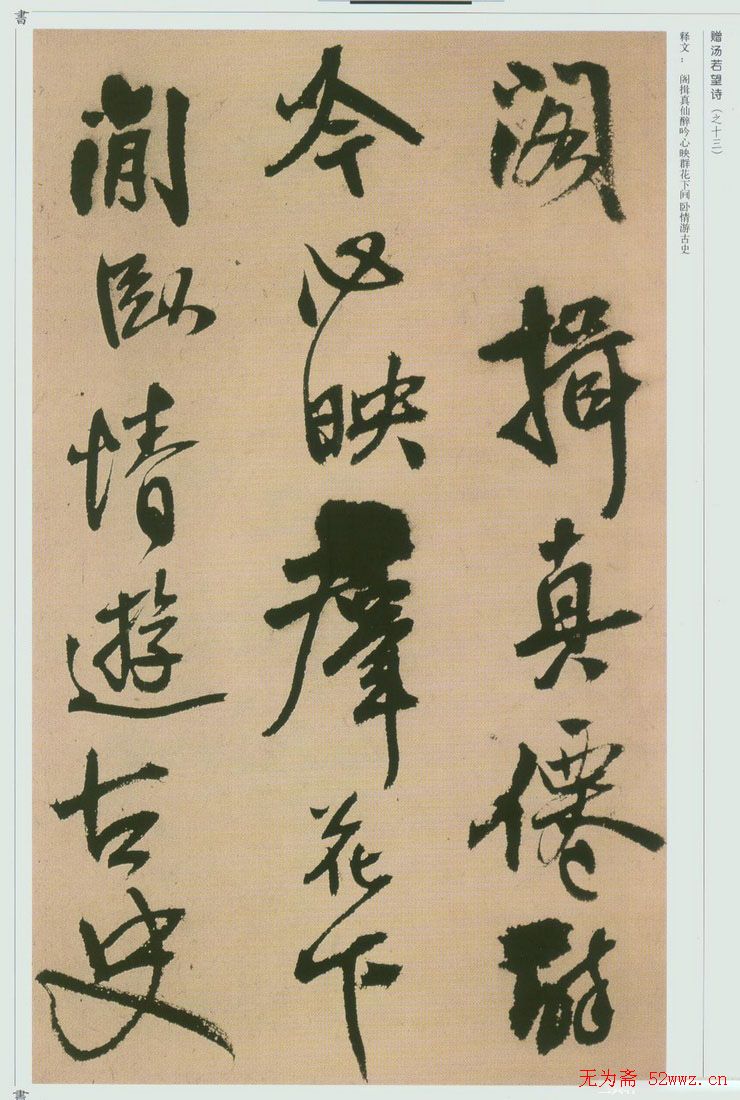 書
赠汤若望诗（之十三）
释文：　阁揖真仙醉吟心映群花下间卧情游古史
閣揖真僊醉
吟心映羣花下
閒臥情遊古史
書
无为斋 52wwz.cn